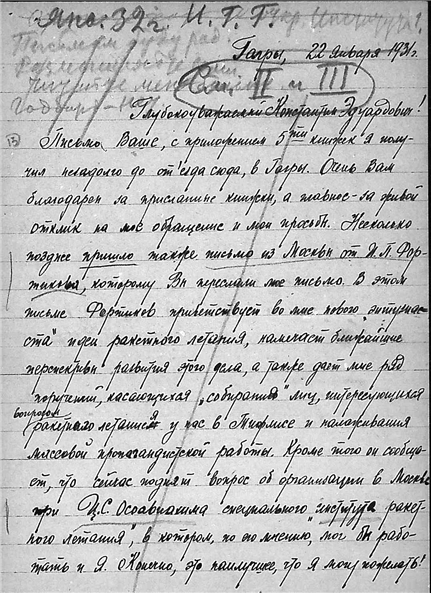 Янв. 32 г. И. Г. Г.
Гагры, 22 Января 1931г.
См. II и III
Глубокоуважаемый Константин Эдуардович!
13
Письмо Ваше, с приложением 5ти книжек я полу-
чил незадолго до от'езда сюда, в Гагры. Очень Вам
благодарен за присланные книжки, а главное - за живой
отклик на мое обращение и мои просьбы. Несколько
позднее пришло также письмо из Москвы от И.П. Фор-
тикова, которому Вы переслали мое письмо. В этом
письме Фортиков приветствует во мне нового "энтузиас-
та" идеи ракетного летания, намечает ближайшие
перспективы развития этого дела, а также дает мне ряд
поручений, касающихся "собирания" лиц, интересующихся
вопросом
ракетного летания у нас в Тифлисе и налаживания
массовой пропагандистской работы. Кроме того он сообща-
ет, что сейчас поднят вопрос об организации в Москве
при Ц.С. Осоавиахима специального "института ракет-
ного летания", в котором, по его мнению, мог бы рабо-
тать и я. Конечно, это наилучшее, что я могу пожелать!